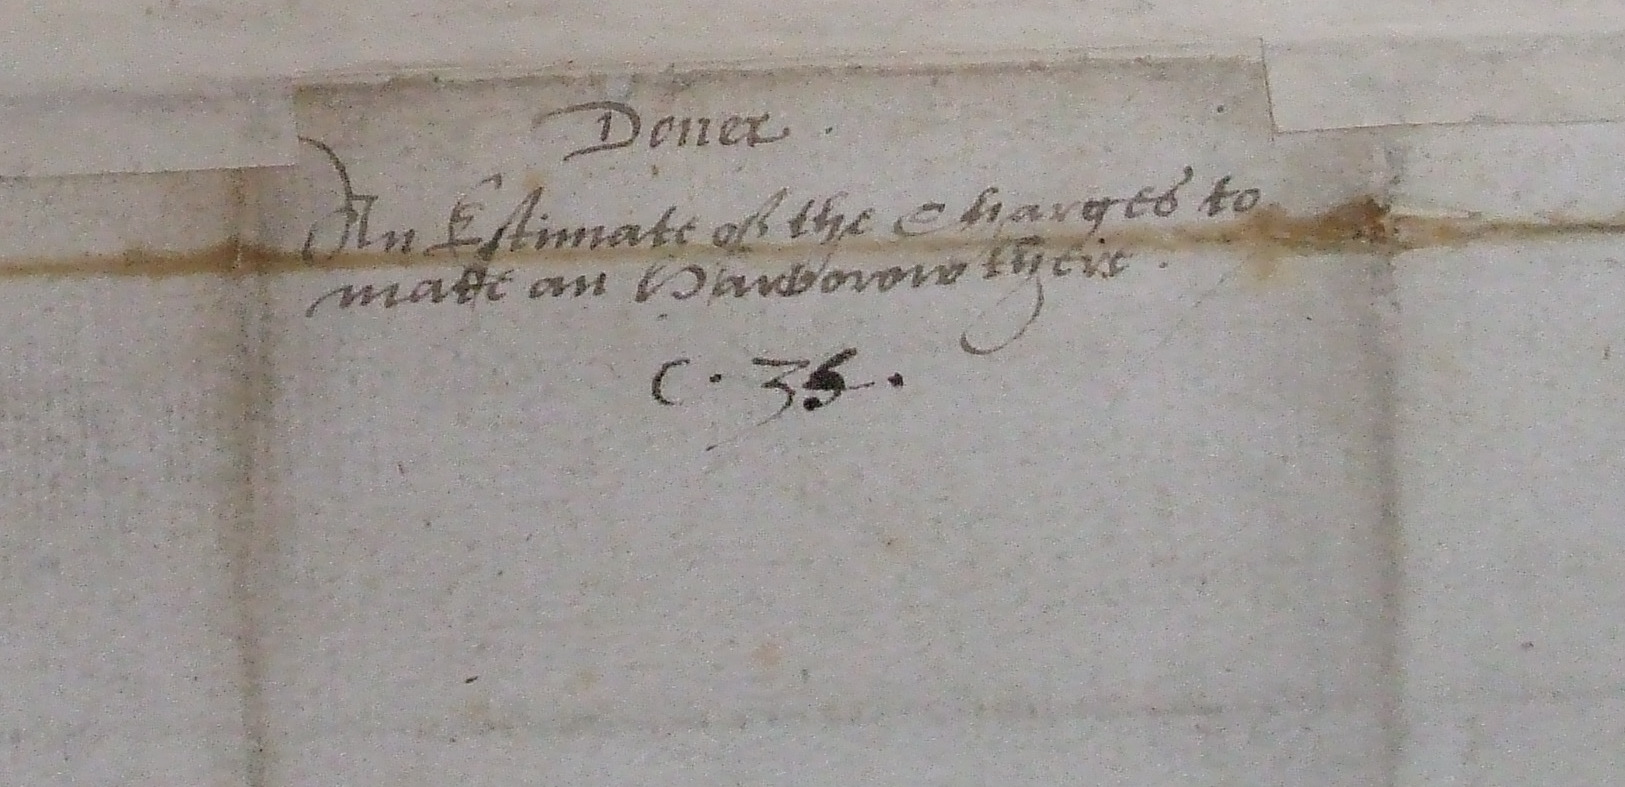 Douer.
An Estimate of the Charges to
make an Harborow there.
C. 35.